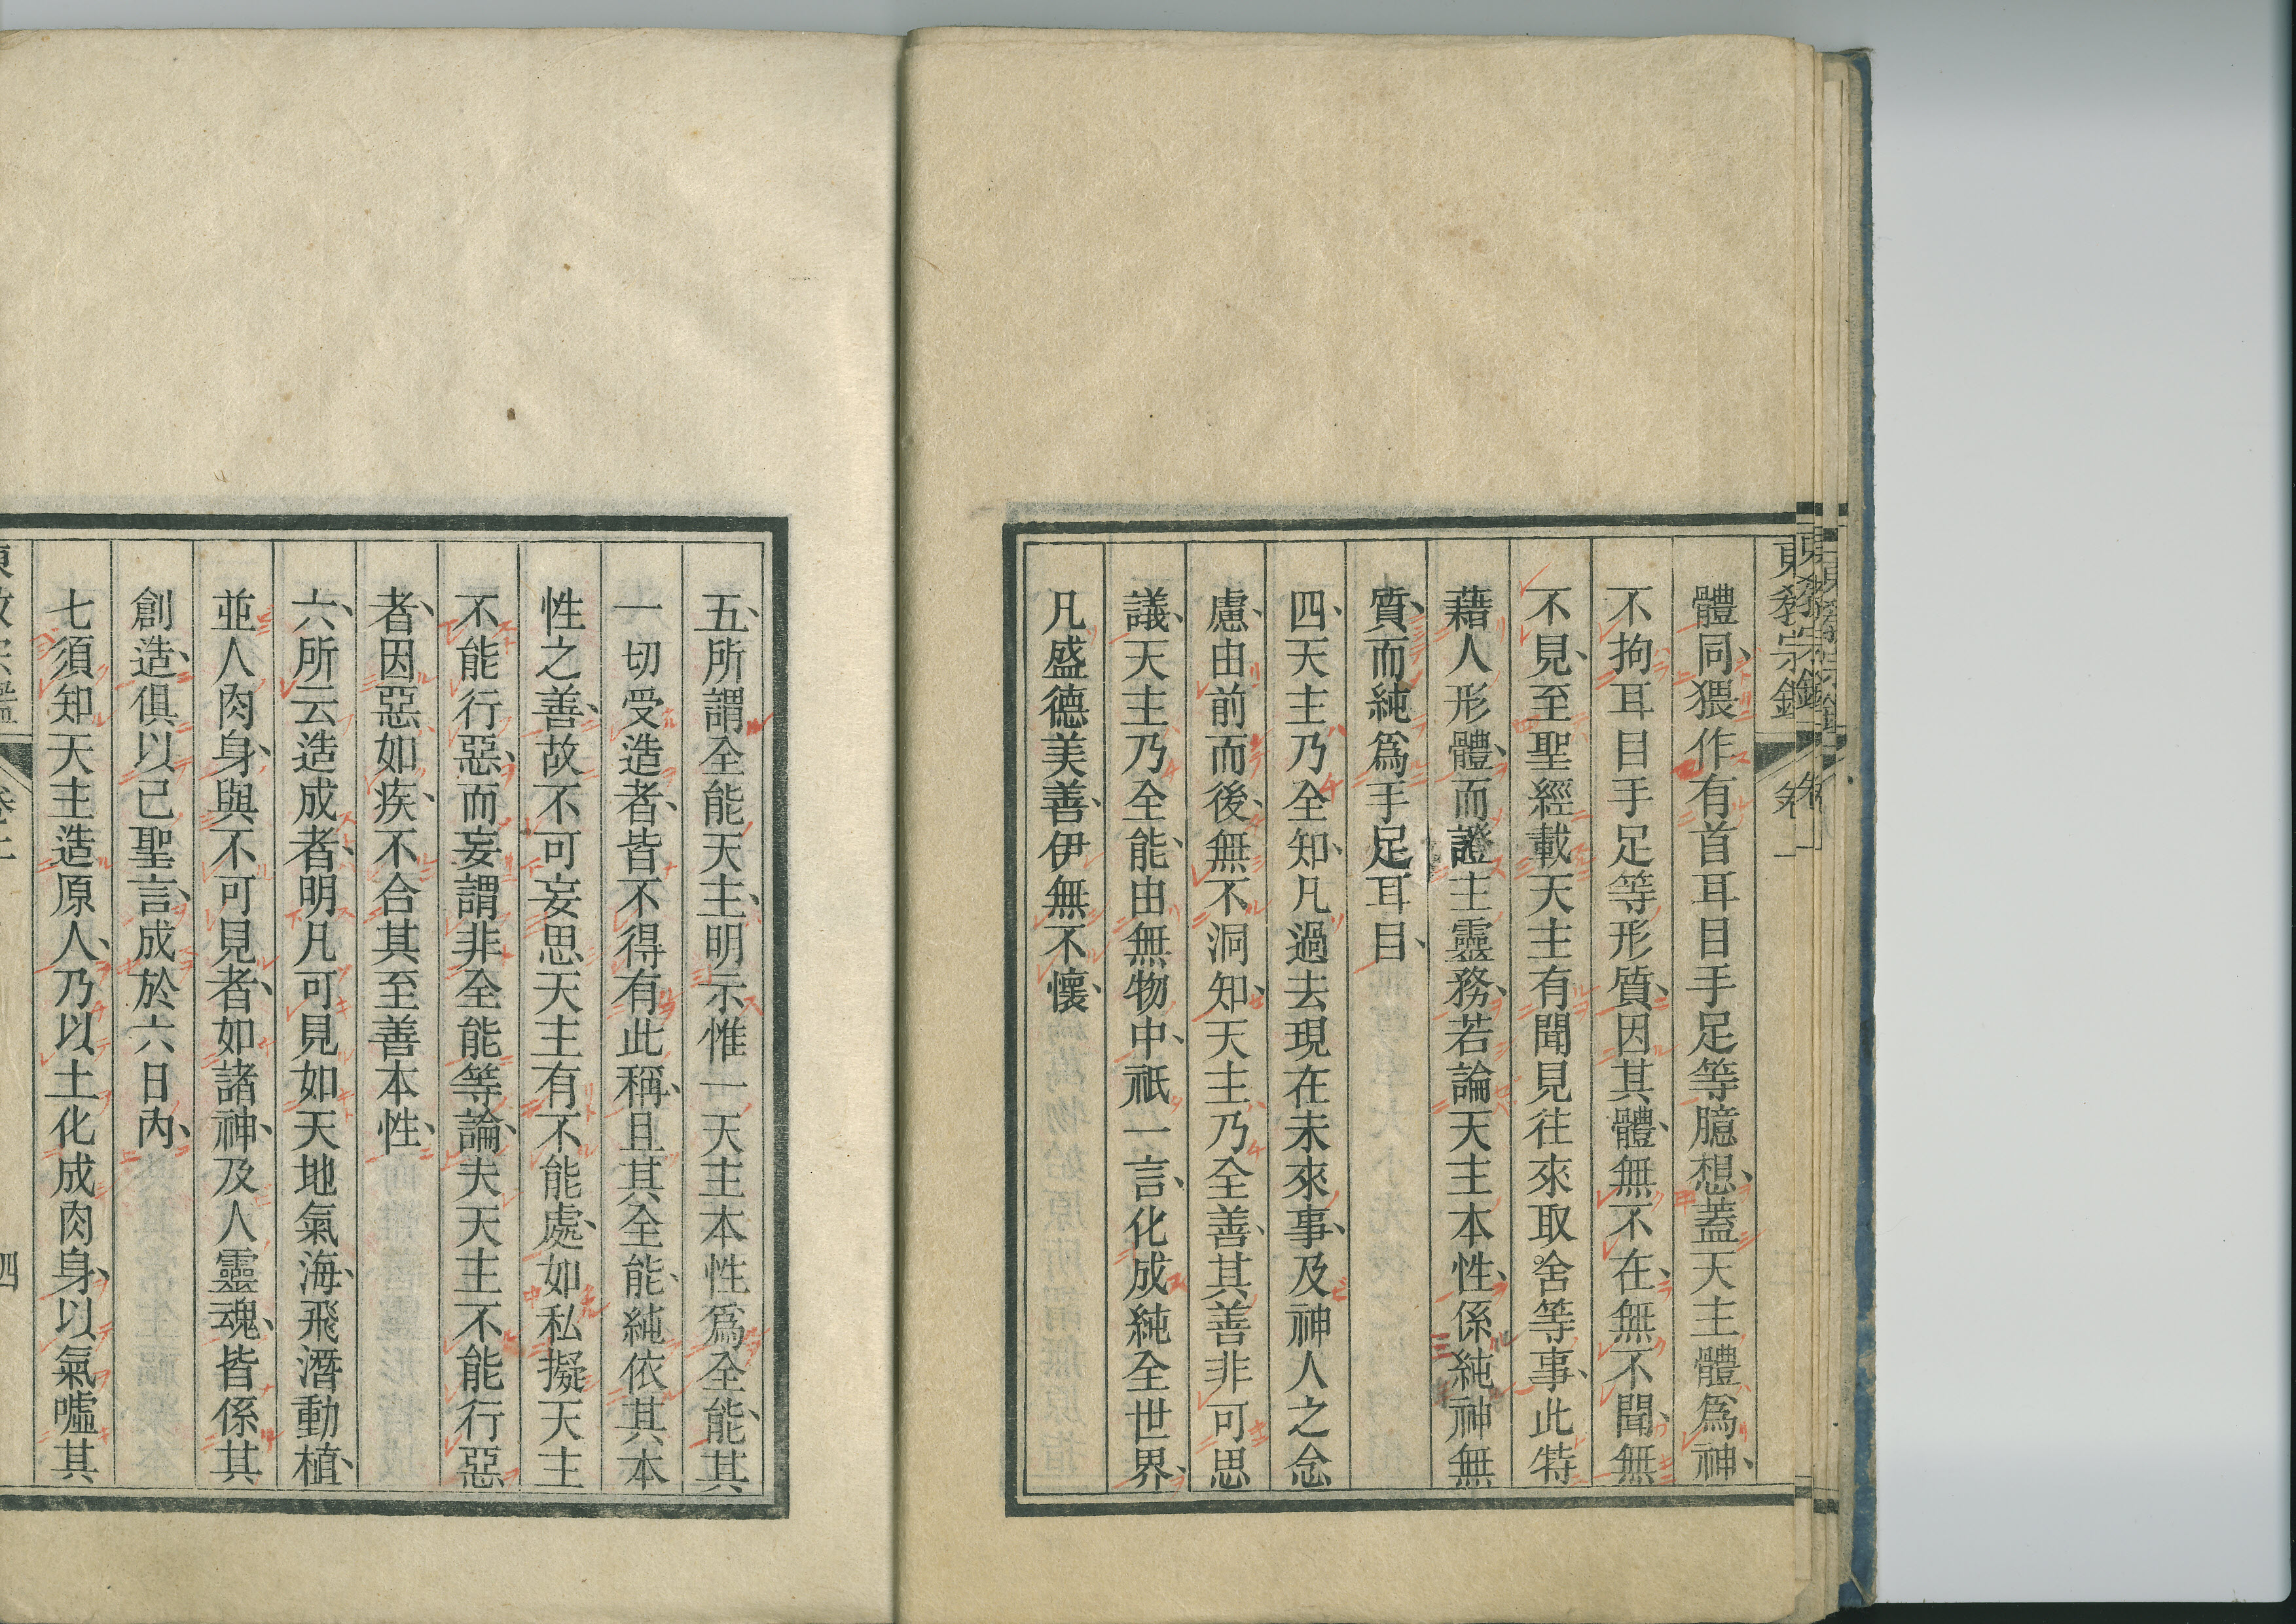 東教宗鑑 卷一
體同、猥作有首耳目手足等臆想、蓋天主體爲神、
不拘耳目手足等形質、因其體、無不在、無不聞、無
不見、至聖經載天主有聞見往來取舍等事、此特
藉人形體、而證主靈務、若論天主本性、係純神無
質、而純爲手足耳目、
四、天主乃全知、凡過去現在未來事、及神人之念
慮、由前而後、無不洞知、天主乃全善、其善非可思
議、天主乃全能、由無物中、祇一言、化成純全世界、
凡盛德美善、伊無不懷、
五、所謂全能天主、明示惟一天主本性爲全能、其
一切受造者、皆不得有此稱、且其全能、純依其本
性之善、故不可妄思天主有不能處、如私擬天主
不能行惡、而妄謂非全能等論、夫天主不能行惡
者、因惡如疾、不合其至善本性、
六、所云造成者、明凡可見如天地氣海、飛潛動植、
並人肉身、與不可見者、如諸神、及人靈魂、皆係其
創造、俱以己聖言、成於六日內、
七須知天主造原人、乃以土化成肉身、以氣噓其
四